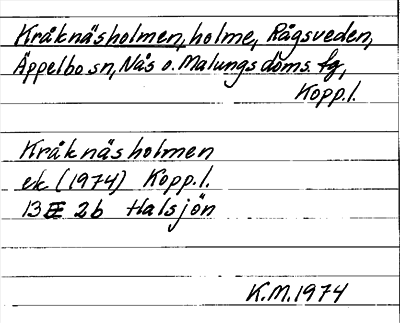 Kråknäsholmen, holme, Rågsveden,
Äppelbo sn, Nås o. Malungs doms. fg,
Kopp.l.
Kråknäsholmen
ek (1974) Kopp.l.
13E 2b Halsjön
K.M. 1974